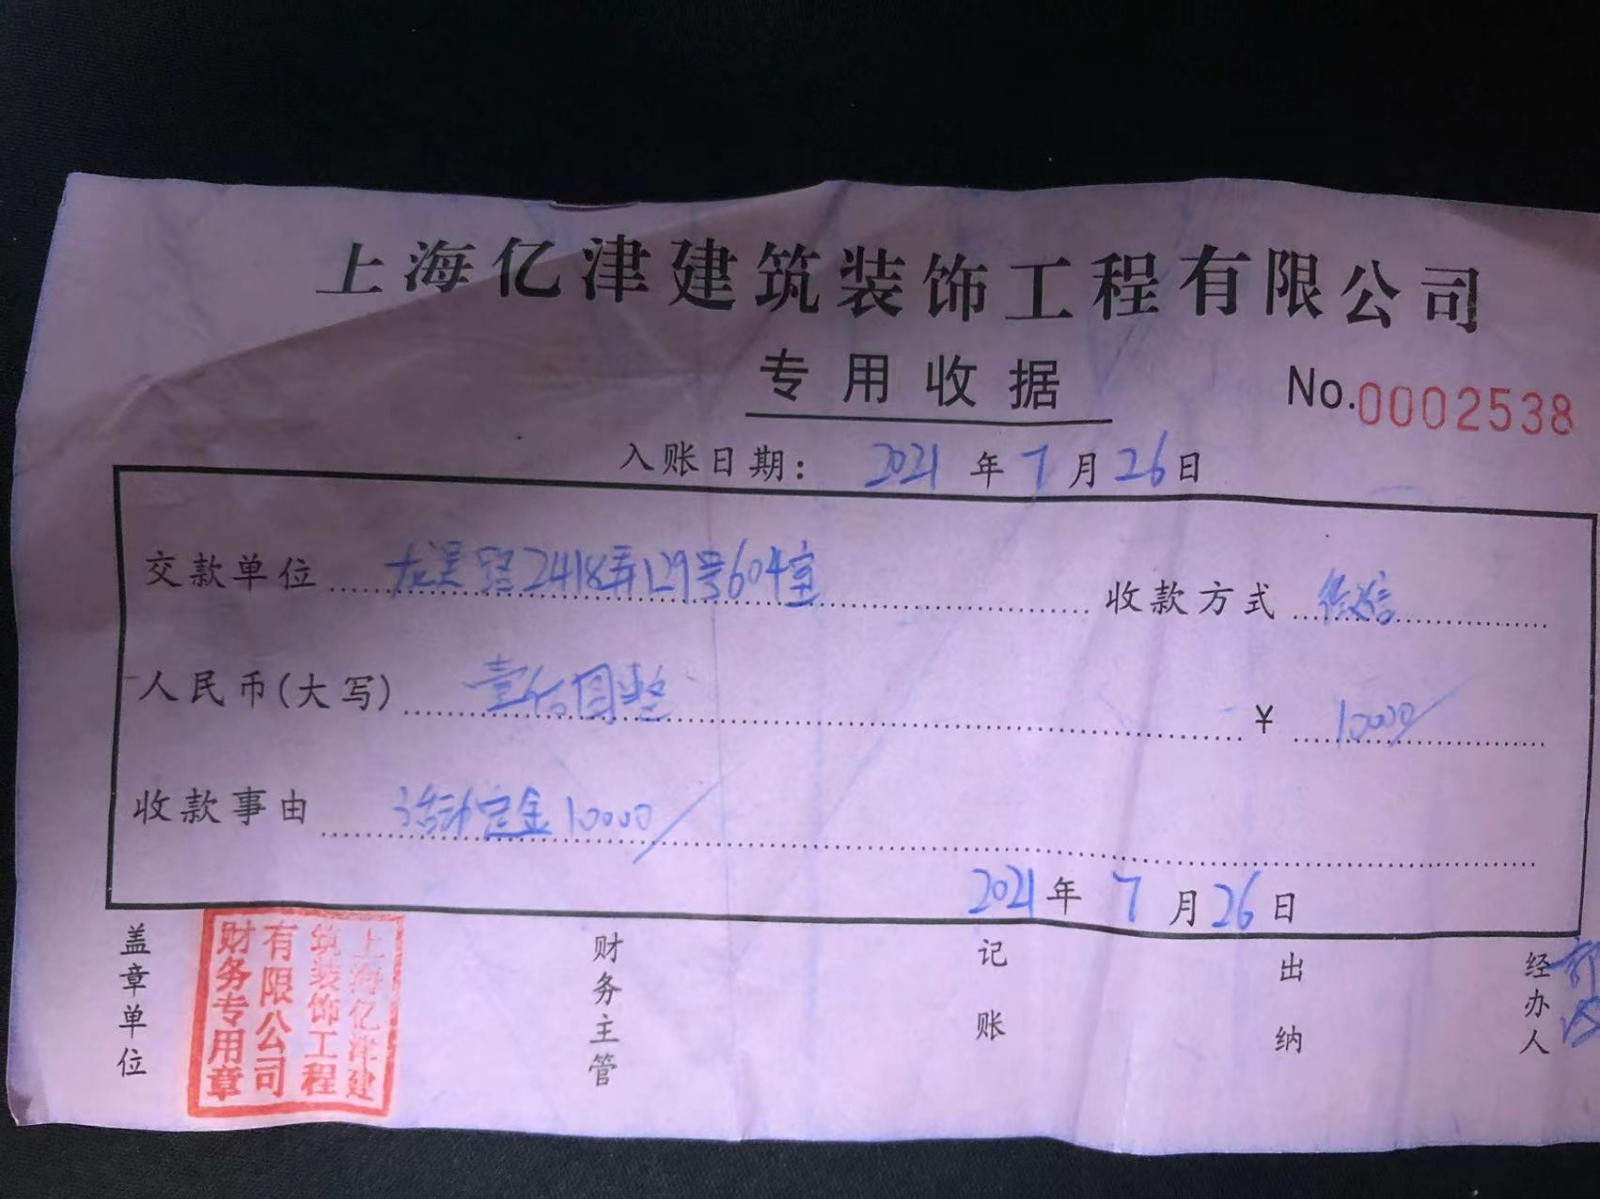 上海亿津建筑装饰工程有限公司
专用收据 No.0002538
入账日期： 2021 年 7 月 26 日
交款单位 龙吴路2418弄129号604室 收款方式 微信
人民币(大写) 壹佰圆整 ¥ 10000
收款事由 定金10000
2021 年 7 月 26 日
盖章单位 财务主管 记账 出纳 经办人
上海亿津建
筑装饰工程
有限公司
财务专用章